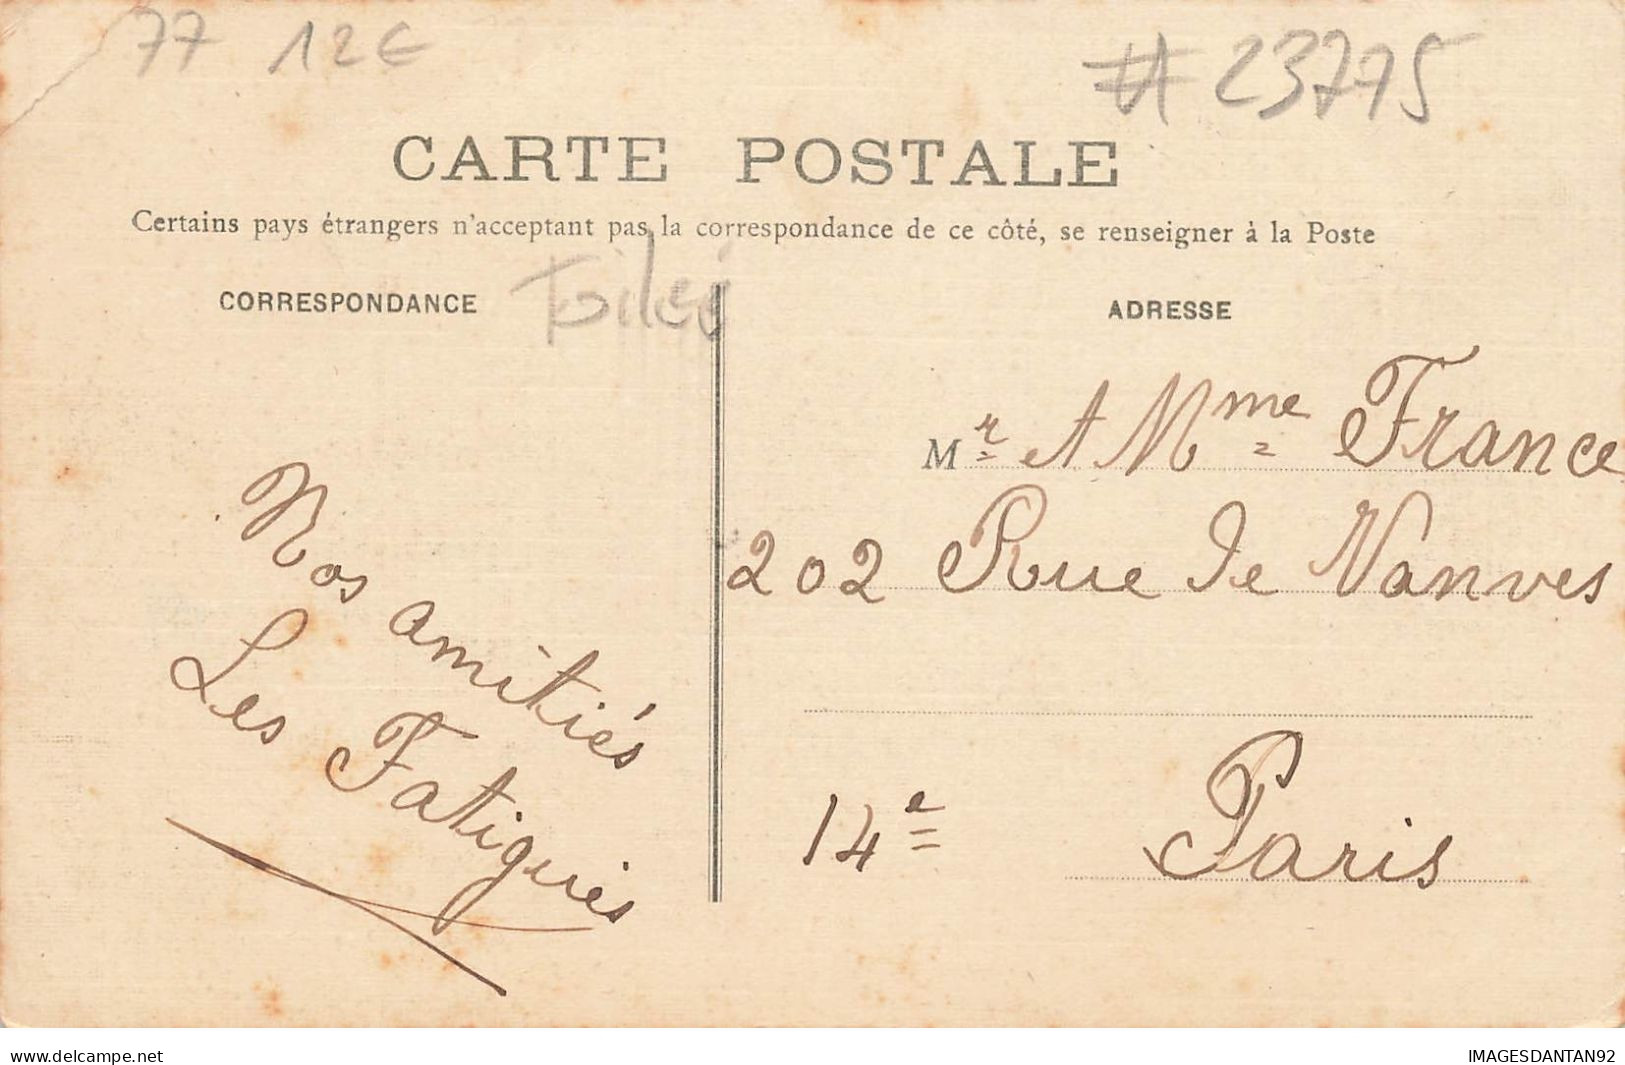 77 12€
#23775
CARTE POSTALE
Certains pays étrangers n'acceptant pas la correspondance de ce côté, se renseigner à la Poste
CORRESPONDANCE
Toilée
ADRESSE
Mr et Mme France
202 Rue de Vanves
14e Paris
Nos amitiés
Les Fatigués
www.delcampe.net
IMAGESDANTAN92